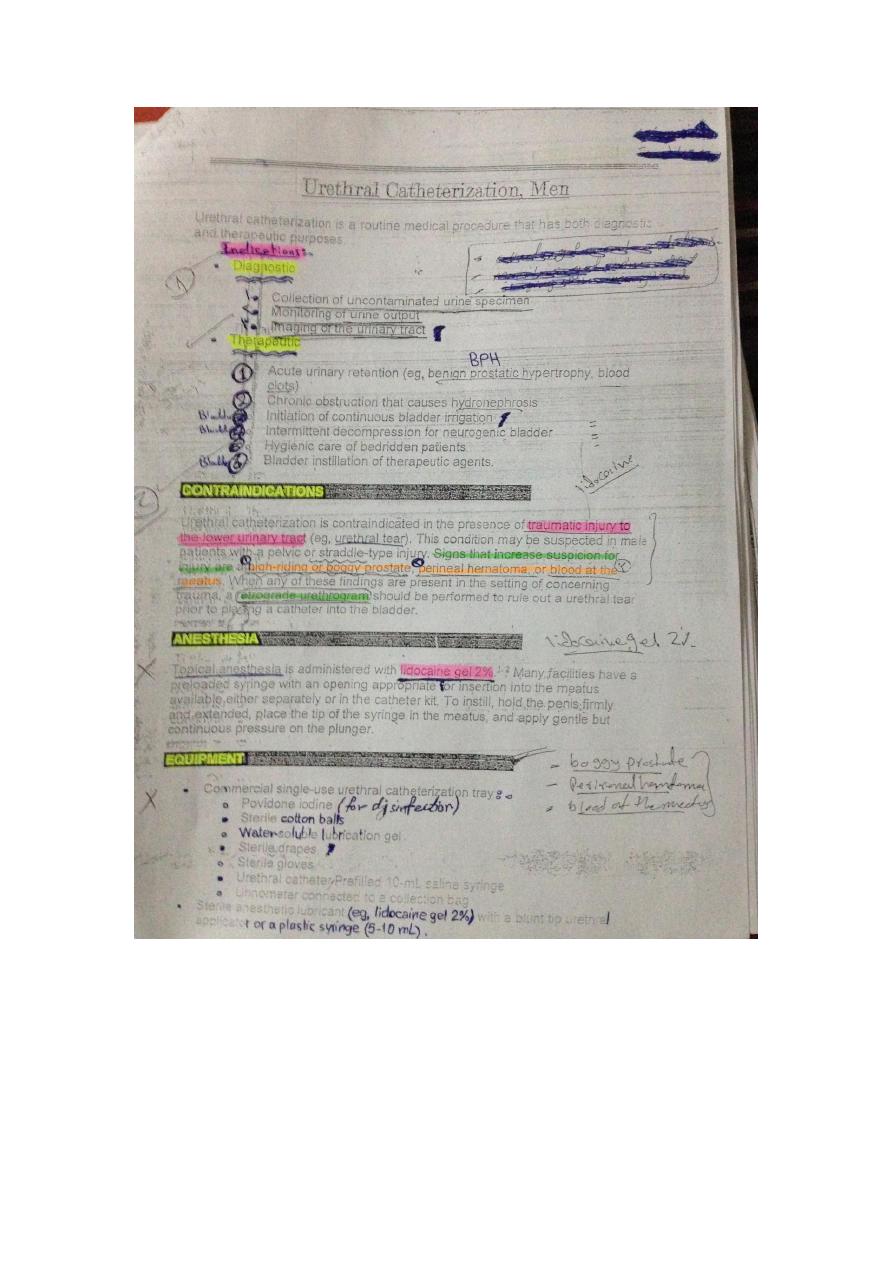 Urethral Catheterization, Men
Urethral catheterization is a routine medical procedure that has both diagnostic
and therapeutic purposes.
Indications:
Diagnostic
Collection of uncontaminated urine specimen
Monitoring of urine output
Imaging of the urinary tract
Therapeutic
BPH
① Acute urinary retention (eg, benign prostatic hypertrophy, blood
clots)
Chronic obstruction that causes hydronephrosis
Initiation of continuous bladder irrigation
Intermittent decompression for neurogenic bladder
Hygienic care of bedridden patients
Bladder instillation of therapeutic agents.
lidocaine
CONTRAINDICATIONS
Urethral catheterization is contraindicated in the presence of traumatic injury to
the lower urinary tract (eg, urethral tear). This condition may be suspected in male
patients with a pelvic or straddle-type injury. Signs that increase suspicion for
injury are a high-riding or boggy prostate, perineal hematoma, or blood at the
meatus. When any of these findings are present in the setting of concerning
trauma, a retrograde urethrogram should be performed to rule out a urethral tear
prior to placing a catheter into the bladder.
ANESTHESIA
lidocaine gel 2%
Topical anesthesia is administered with lidocaine gel 2%. Many facilities have a
preloaded syringe with an opening appropriate for insertion into the meatus
available either separately or in the catheter kit. To instill, hold the penis firmly
and extended, place the tip of the syringe in the meatus, and apply gentle but
continuous pressure on the plunger.
EQUIPMENT
- boggy prostate
- Perineal hematoma
- blood at the meatus
Commercial single-use urethral catheterization tray:
Povidone iodine (for disinfection)
Sterile cotton balls
Water-soluble lubrication gel
Sterile drapes
Sterile gloves
Urethral catheter Prefilled 10-mL saline syringe
Urinometer connected to a collection bag
Sterile anesthetic lubricant (eg, lidocaine gel 2%) with a blunt tip urethral
applicator or a plastic syringe (5-10 mL).